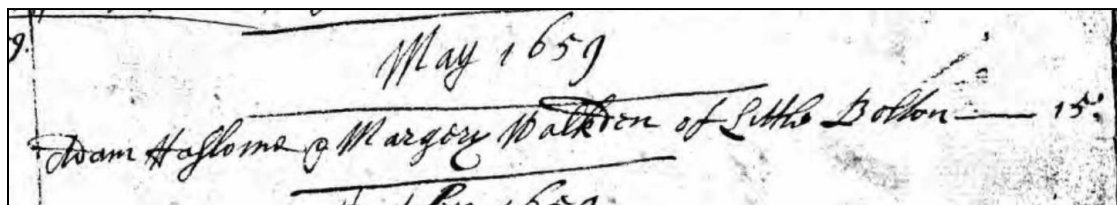 May 1659
Adam Haslome & Margery Walkden of Little Bolton — 15:
1659